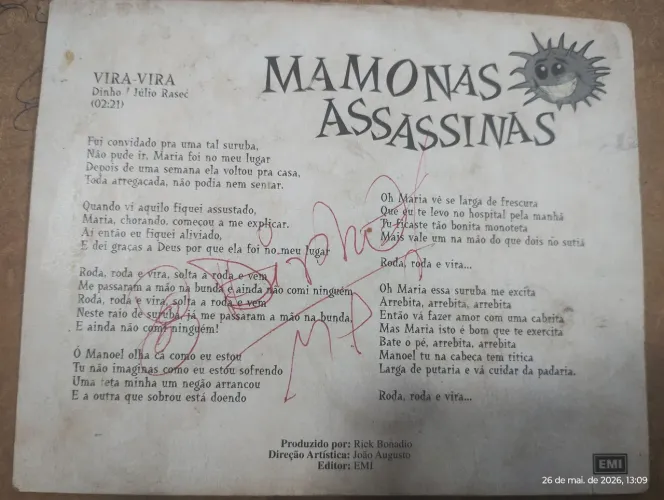 VIRA-VIRA
Dinho / Júlio Rasec
(02:21)
MAMONAS
ASSASSINAS
Fui convidado pra uma tal suruba,
Não pude ir, Maria foi no meu lugar
Depois de uma semana ela voltou pra casa,
Toda arregaçada, não podia nem sentar.
Quando vi aquilo fiquei assustado,
Maria, chorando, começou a me explicar.
Aí então eu fiquei aliviado,
E dei graças a Deus por que ela foi no meu lugar
Roda, roda e vira, solta a roda e vem
Me passaram a mão na bunda e ainda não comi ninguém
Roda, roda e vira, solta a roda e vem
Neste raio de suruba, já me passaram a mão na bunda,
E ainda não comi ninguém!
Ô Manoel olha cá como eu estou
Tu não imaginas como eu estou sofrendo
Uma teta minha um negão arrancou
E a outra que sobrou está doendo
Oh Maria vê se larga de frescura
Que eu te levo no hospital pela manhã
Tu ficaste tão bonita monoteta
Mais vale um na mão do que dois no sutiã
Roda, roda e vira...
Oh Maria essa suruba me excita
Arrebita, arrebita, arrebita
Então vá fazer amor com uma cabrita
Mas Maria isto é bom que te exercita
Bate o pé, arrebita, arrebita
Manoel tu na cabeça tem titica
Larga de putaria e vá cuidar da padaria.
Roda, roda e vira...
Dinho
Produzido por: Rick Bonadio
Direção Artística: João Augusto
Editor: EMI
EMI
26 de mai. de 2026, 13:09